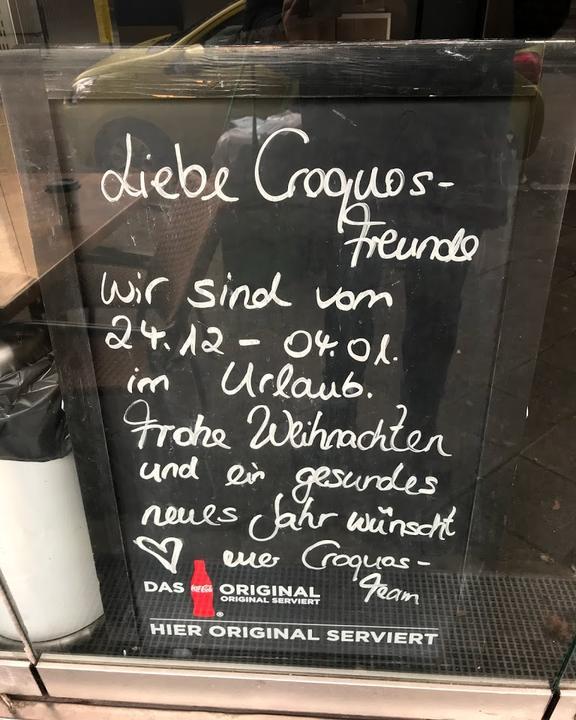 Liebe Croquos-
Freunde
wir sind vom
24.12 - 04.01.
im Urlaub.
Frohe Weihnachten
und ein gesundes
neues Jahr wünscht
♡ euer Croquos-
Team
DAS Coca-Cola ORIGINAL
ORIGINAL SERVIERT
HIER ORIGINAL SERVIERT